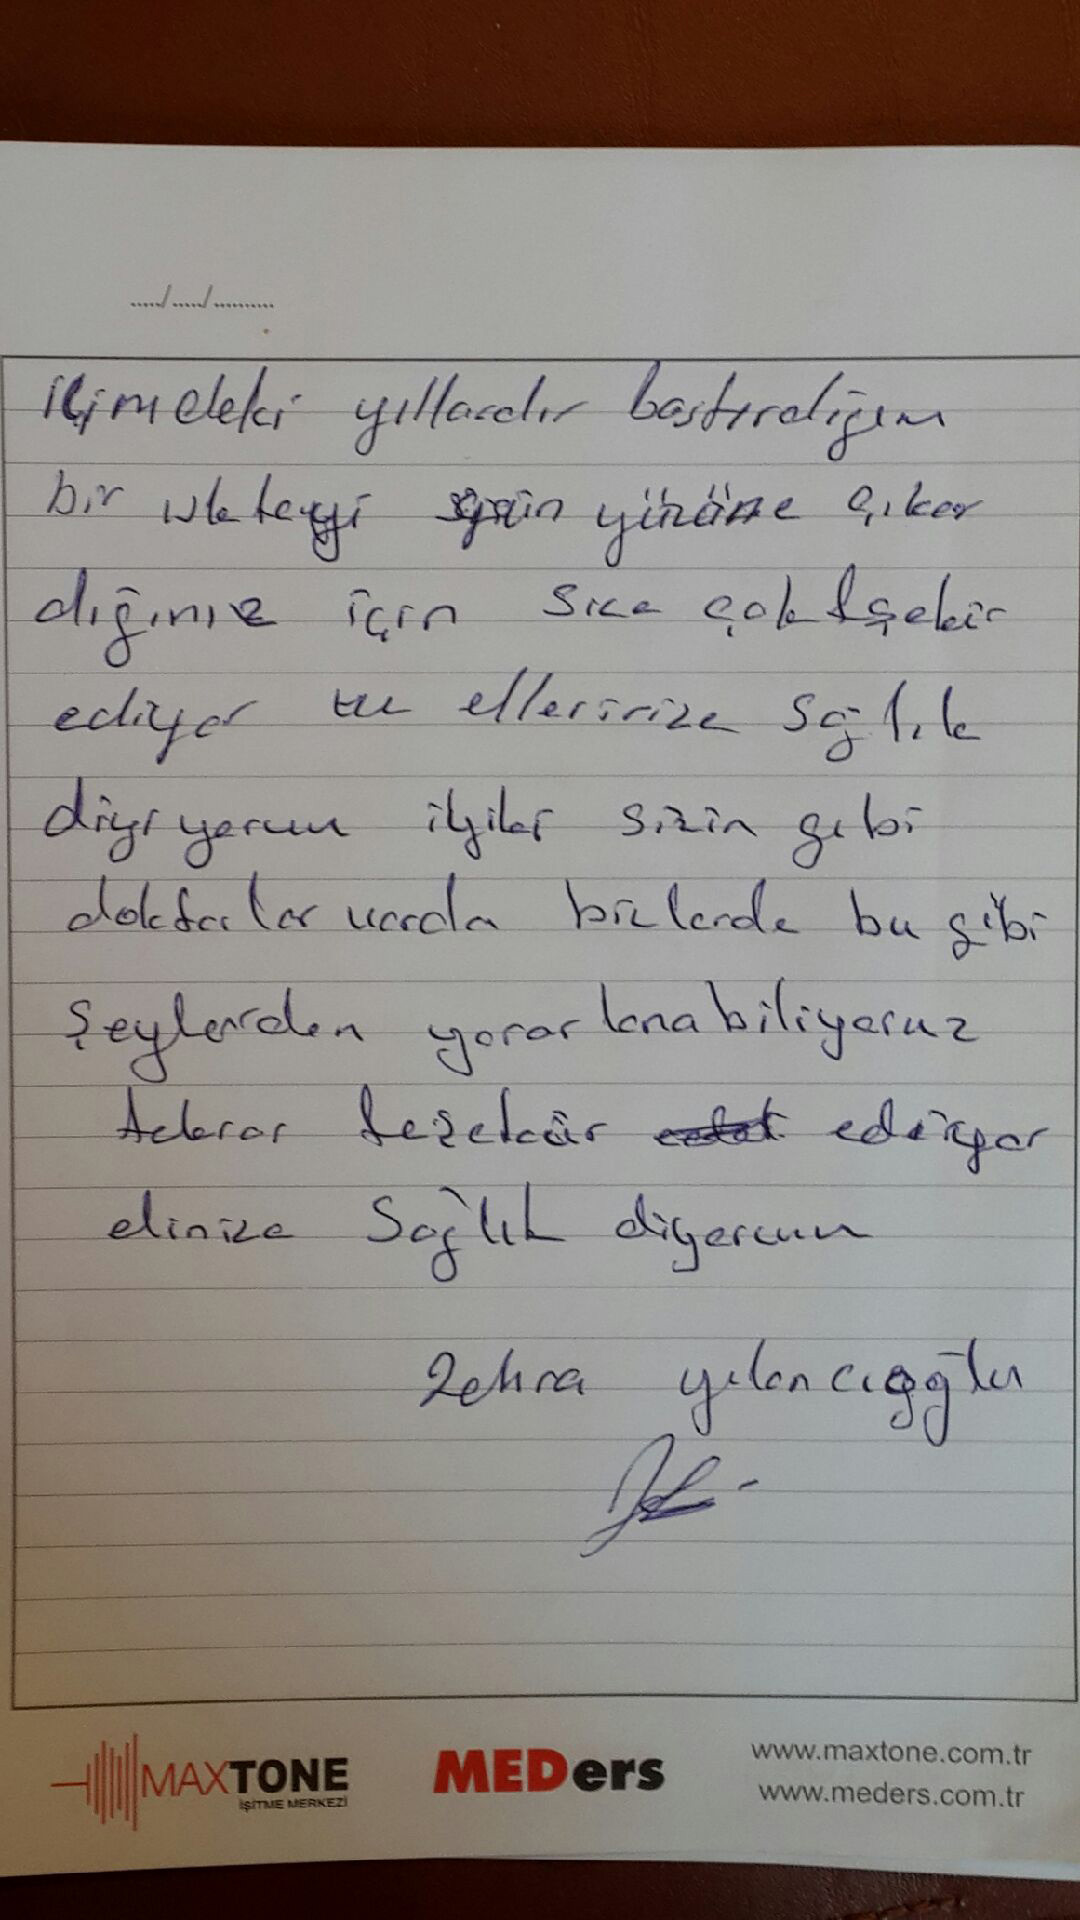 ...../...../..........
içimdeki yıllardır bastırdığım
bir ukteyi gün yüzüne çıkar
dığınız için size çok teşekür
ediyor ve ellerinize sağlık
diyi yorum iyiki sizin gibi
doktorlar varda bizlerde bu gibi
şeylerden yararlanabiliyoruz
tekrar teşekkür ediyor
elinize sağlık diyorum
Zehra yılancıoğlu
MAXTONE
İŞİTME MERKEZİ
MEDers
www.maxtone.com.tr
www.meders.com.tr